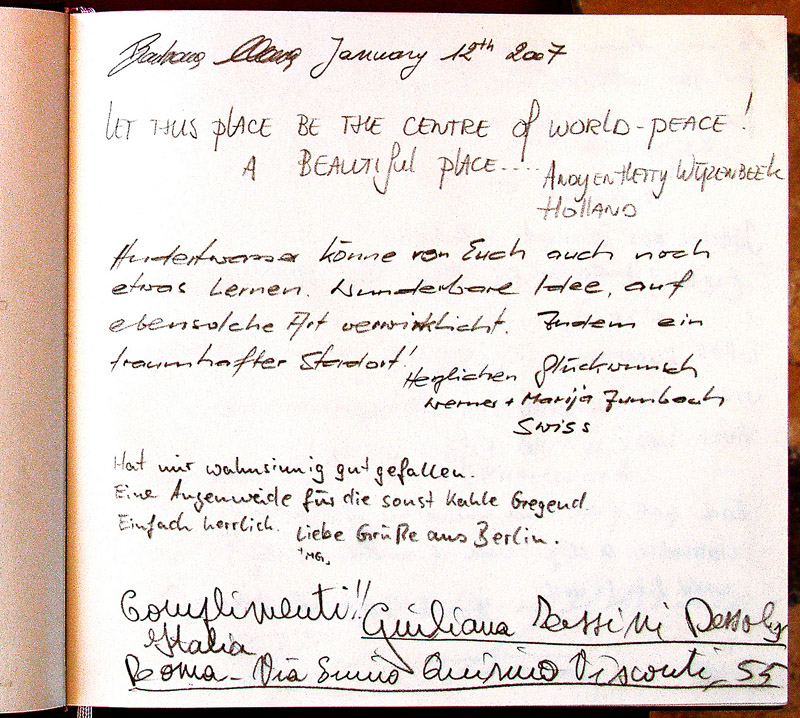 Barbara January 12th 2007
LET THIS PLACE BE THE CENTRE of WORLD-PEACE!
A BEAUTIFUL PLACE....
ANDY EN HETTY WIJZENBEEK
HOLLAND
Hundertwasser könne von Euch auch noch
etwas Lernen. Wunderbare Idee, auf
ebensolche Art verwirklicht. Zudem ein
traumhafter Standort!
Herzlichen Glückwunsch
Werner + Marija Zumbach
Swiss
Hat mir wahnsinnig gut gefallen.
Eine Augenweide für die sonst kahle Gegend.
Einfach herrlich. Liebe Grüße aus Berlin.
Complimenti!! Giuliana Passini
Italia
Roma - Via Quirino Visconti, 55